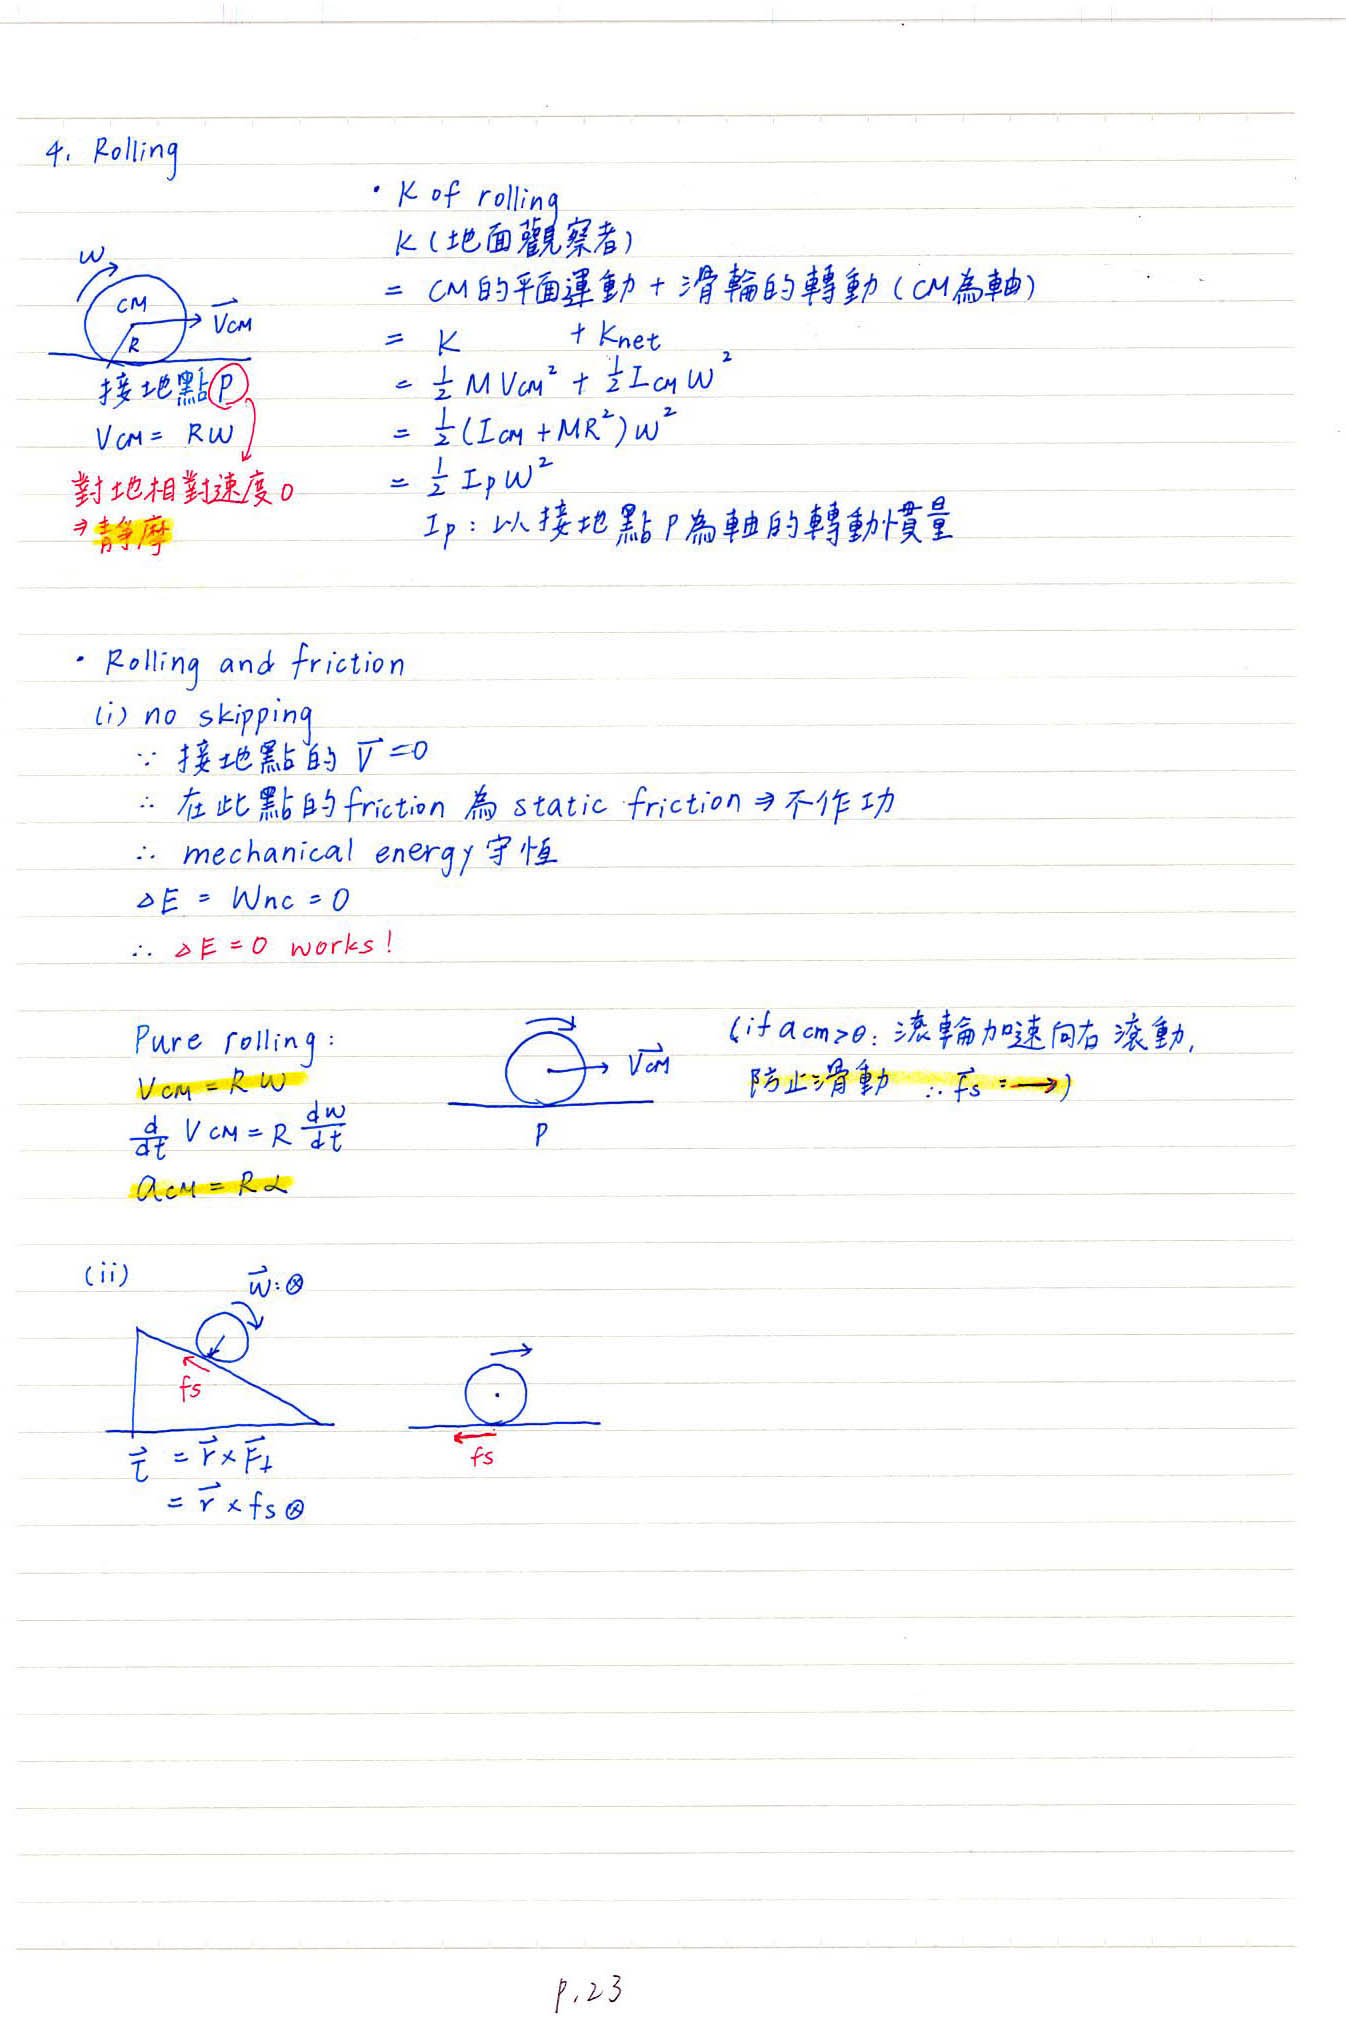 4. Rolling
ω
CM
R
V⃗CM
接地點P
VCM = Rω
對地相對速度0
⇒靜摩
• K of rolling
K (地面觀察者)
= CM的平面運動 + 滑輪的轉動 (CM為軸)
= K + Knet
= ½ M VCM² + ½ ICM ω²
= ½ (ICM + MR²) ω²
= ½ IP ω²
IP : 以接地點P為軸的轉動慣量
• Rolling and friction
(i) no skipping
∵ 接地點的 V⃗ = 0
∴ 在此點的friction 為 static friction ⇒ 不作功
∴ mechanical energy 守恆
△E = Wnc = 0
∴ △E = 0 works!
Pure rolling :
VCM = Rω
d/dt VCM = R dω/dt
aCM = Rα
V⃗CM
P
(if acm>0: 滾輪加速向右滾動,
防止滑動 ∴ f⃗s : →)
(ii)
ω⃗ : ⊗
fs
τ⃗ = r⃗ × F⃗⊥
= r⃗ × fs ⊗
fs
P.23